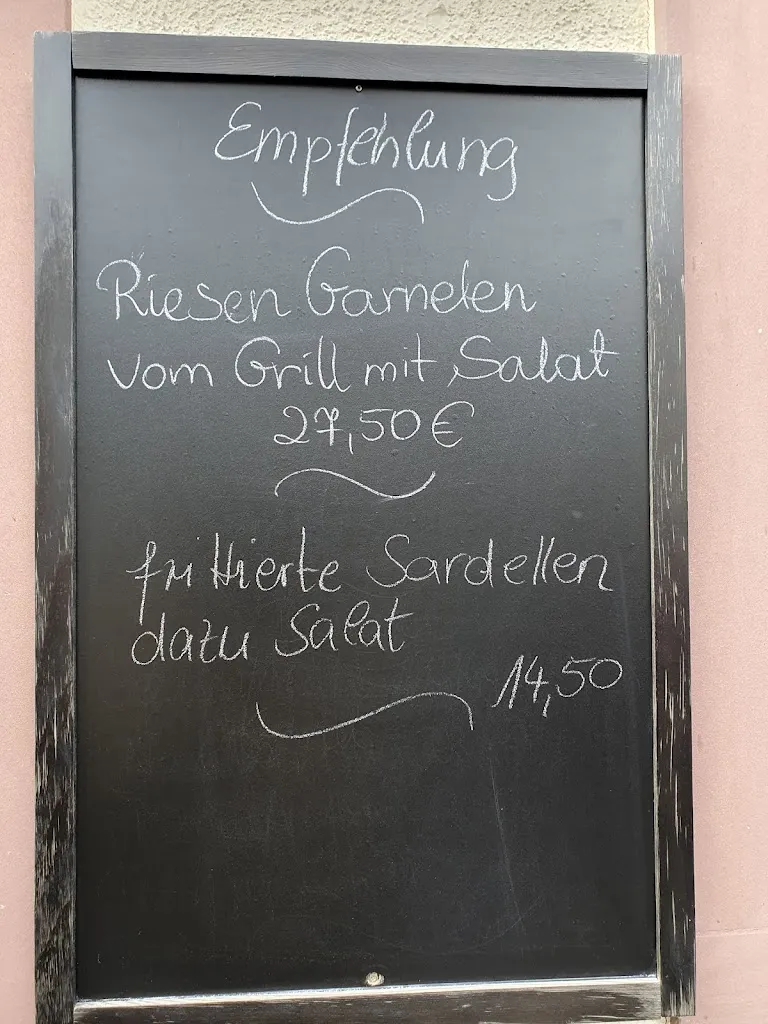 Empfehlung
Riesen Garnelen
vom Grill mit Salat
27,50€
frittierte Sardellen
dazu Salat
14,50